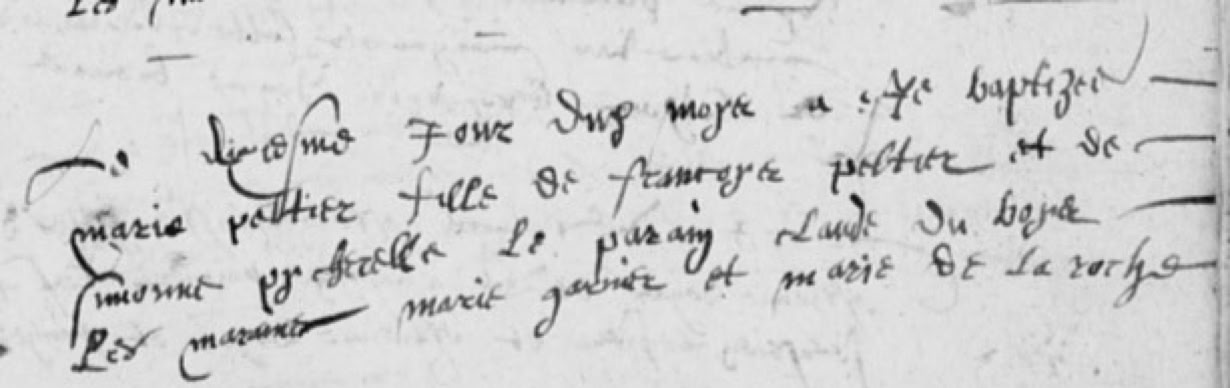 Les
Le dixesme Jour dud moys a este baptizee
marie peltier fille de francoys peltier et de
Simonne pycherelle Le parain Claude du boys
Les maraines marie garnier et marie de la roche